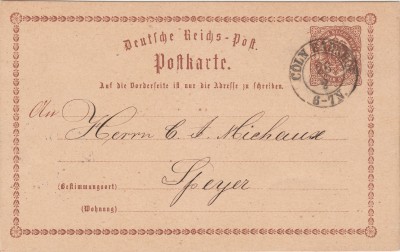 Deutsche Reichs-Post.
Postkarte.
Auf die Vorderseite ist nur die Adresse zu schreiben.
CÖLN
6-7N.
An
Herrn C A Michaux
Speyer
(Bestimmungsort)
(Wohnung)